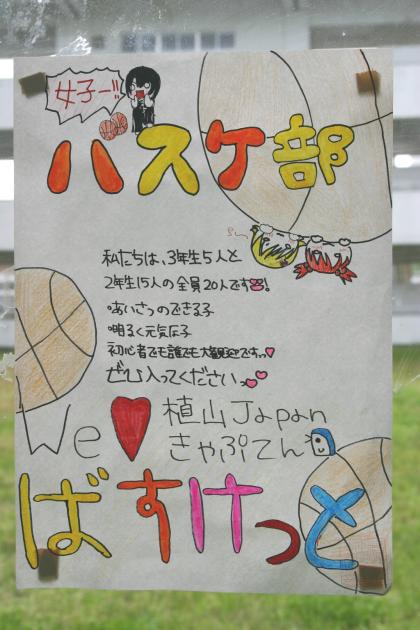 女子ー!!
ハスケ部
私たちは、3年生5人と
2年生15人の全員20人です!
・あいさつのできる子
・明るく元気な子
初心者でも誰でも大歓迎ですっ♥
ぜひ入ってくださいっ
We ♥ 植山Japan
きゃぷてん
ばすけっと